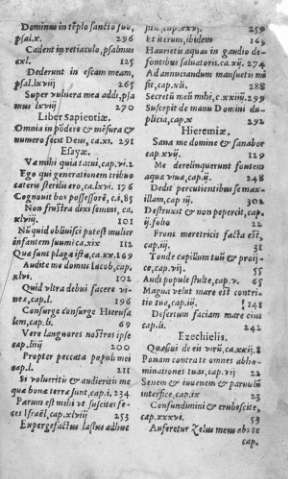 Dominus in teplo sancto suo,
psal.x. 296
Cadent in retiaculo, psalmus
cxl. 125
Dederunt in escam meam,
psal.lxviij 265
Super vulnera mea addi, psa
mus lxviij 270
Liber Sapientiæ.
Omnia in podere & mesura &
numero fecit Deus, ca.xi. 291
Esayæ.
Væ mihi quia tacui, cap.vi. 2
Ego qui generationem tribuo
cæteris sterilis ero, ca.lxvi. 176
Cognouit bos possessorē, c.i. 85
Non frustra dixi semini, ca.
xlviij. 101
Nūquid obliuisci potest mulier
infantem suum ca.xix 112
Quæ sunt plagæ istæ, ca.xx. 169
Audite me domus Iacob, cap.
xlvi. 102
Quid vltra debui facere vi-
neæ, cap.l. 196
Consurge consurge Hierusa
lem, cap.li. 69
Vere languores nostros ipse
cap.liij 200
Propter peccata populi mei
cap.l. 211
Si volueritis & audieritis me
quæ bona terræ sunt, cap.i. 234
Parum est mihi ut suscites fe-
ces Israël, cap.xlviij 253
Expergefactus lassus adhuc
259
Et iterum, ibidem 169
Haurietis aquas in gaudio de
fontibus saluatoris. ca.xij. 274
Ad annuntiandum mansuetis mi
sit, cap.xli. 288
Secretū meū mihi, c.xxiiij. 299
Suscepit de manu Domini du
plicia, cap.x 292
Hieremiæ.
Sana me domine & sanabor
cap.xvij. 129
Me dereliquerunt fontem
aquæ viuæ, cap.ij. 248
Dedit percutientibus se max-
illam, cap iij 302
Destruxit & non pepercit, cap.
ij. folio 22
Frons meretricis facta est,
cap.iij. 31
Tonde capillum tuū & proij-
ce, cap.vij. 55
Auis populæ stulte, cap.v. 65
Magna velut mare est contri-
tio tua, cap.iij. 148
Desertum faciam mare eius
cap.li. 242
Ezechielis.
Quæsiui de eis virū, ca.xxij. 8
Ponam contra te omnes abho-
minationes tuas, cap.vij 22
Senem & iuuenem & paruulū
interfice, cap.ix 23
Confundimini & erubescite,
cap.xxxvi. 53
Auferetur zelus meus abs te
cap.